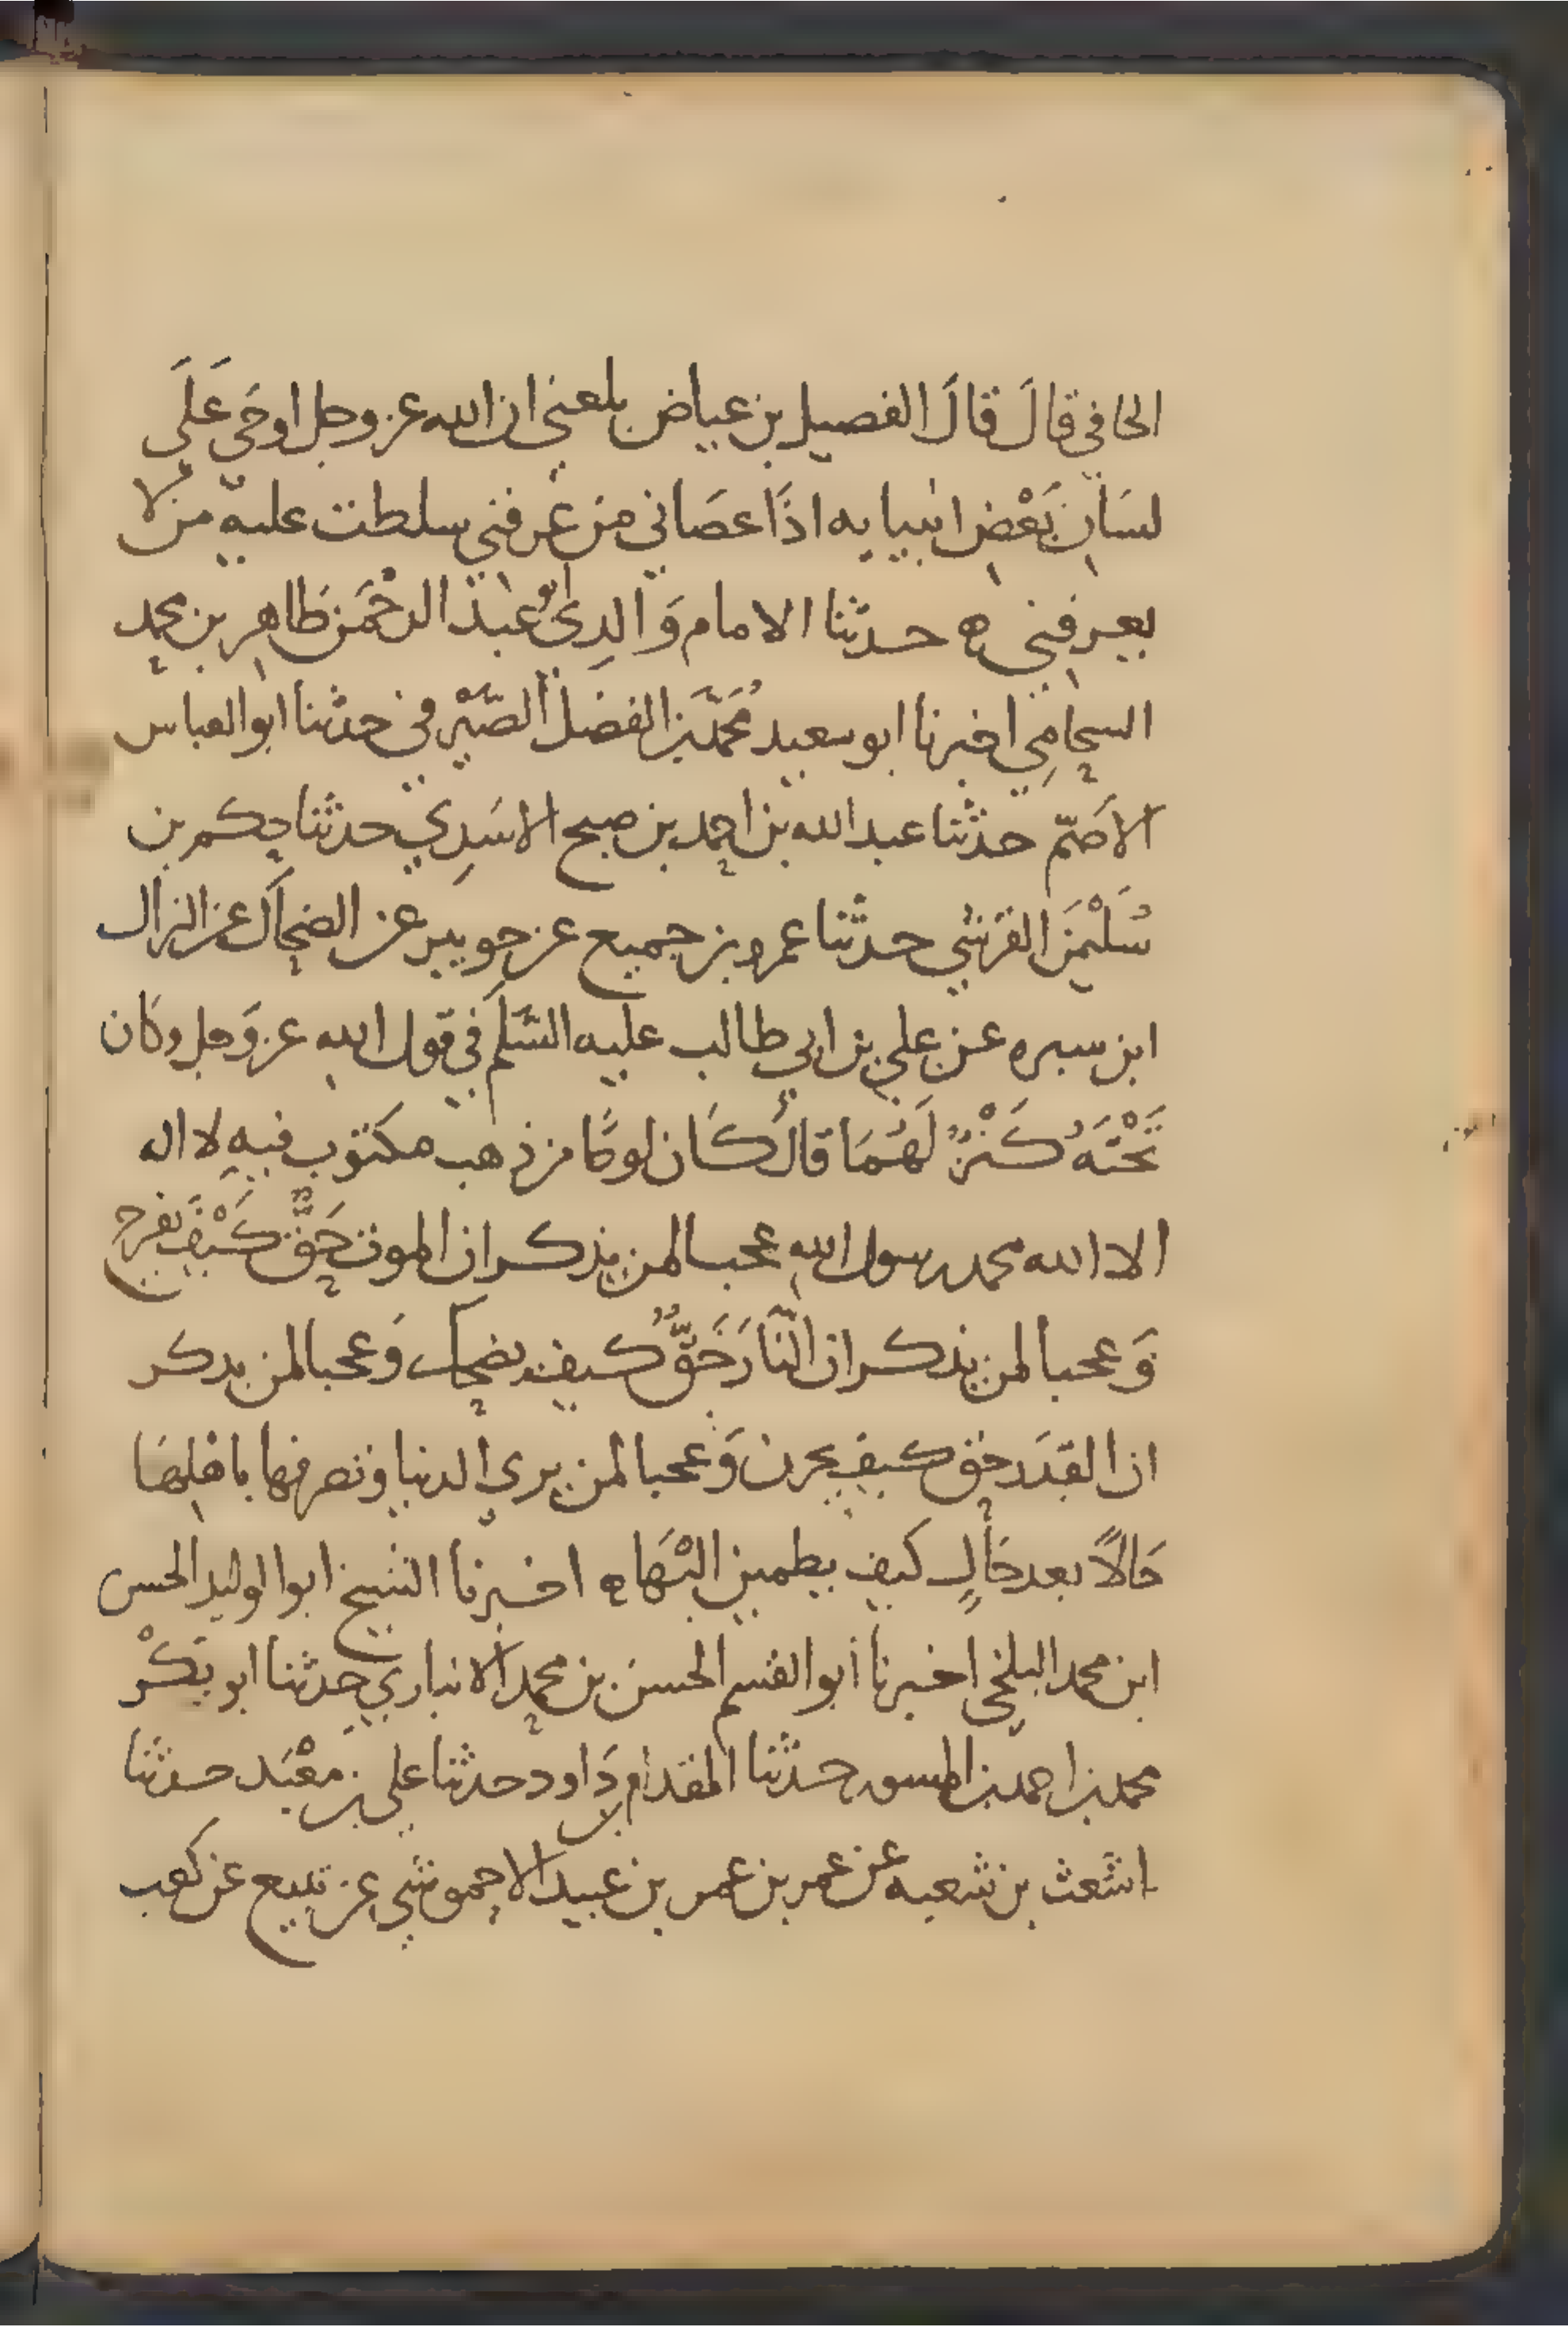 الحافي قالَ قالَ الفصيل بن عياض بلعني ان الله عز وجل اوحَي عَلَي
لسَان بَعْض انبيايه اذَا عصَاني مَن عَرفني سلطت عليه من لا
يعرفني ه حدثنا الامام وَالدِي ابو عَبد الرحْمَن طَاهر بن محمد
السحامِي اخبرنا ابو سعيد مُحَمّد بن الفضل الصّيْرفي حدثنا ابو العباس
الاصَمّ حدثنا عبد الله بن احمد بن صبح الاسَدِي حدثنا حكم بن
سُلَيْمَن القرَشي حدثنا عمرو بن جميع عن جويبر عن الضحاك عن النزال
ابن سبره عن علي بن ابي طالب عليه السَّلم في قول الله عز وَجل وكان
تَحْتَهُ كَنْزٌ لَهُمَا قالَ كَان لوحًا من ذهب مكتوب فيهِ لا اله
الا الله محمد رسول الله عجبا لمن يذكر ان الموت حَقٌّ كَيْفَ يفرح
وَعجبا لمن يذكر ان النّارَ حَقٌّ كيف يضحك وَعجبا لمن يدكر
ان القدَر حَق كيف يحزن وَعجبا لمن يري الدنيا وتصرفها باهْلِهَا
حَالاً بعد حَالٍ كيف يطمين اليْهَا ه اخبرنا الشيخ ابوا لوليد الحسن
ابن محمد البلخي اخبرنا ابو القسم الحسن بن محمد الانباري حدثنا ابو بَكْر
محمد بن احمد بن المسور حدثنا المقدام بن دَاود حدثنا علي بن معْبَد حدثنا
اشَعث بن شعبه عن عمر بن عمر بن عبيد الاحموشي عن تبيع عن كعب